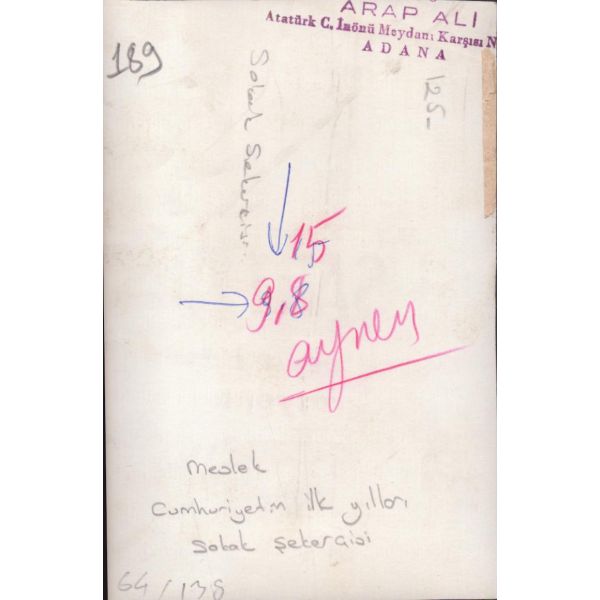 ARAP ALİ
Atatürk C. İnönü Meydanı Karşısı N
ADANA
189
Sokak Şekercisi
125-
15
9,8
aynen
Meslek
Cumhuriyetin ilk yılları
Sokak Şekercisi
64/138